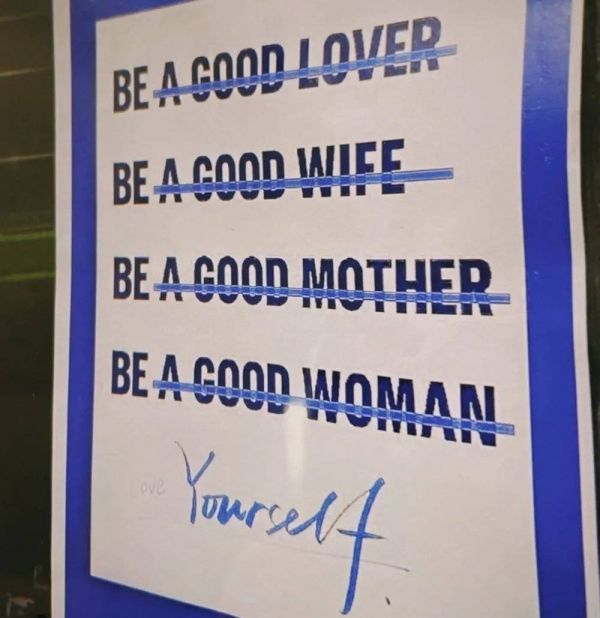 BE A GOOD LOVER
BE A GOOD WIFE
BE A GOOD MOTHER
BE A GOOD WOMAN
Love Yourself.